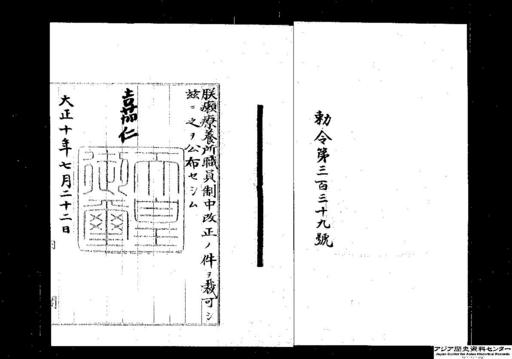 勅令第三百三十九號
朕癩療養所職員制中改正ノ件ヲ裁可シ
玆ニ之ヲ公布セシム
嘉仁
天皇御璽
大正十年七月二十二日
内閣
アジア歴史資料センター
Japan Center for Asian Historical Records